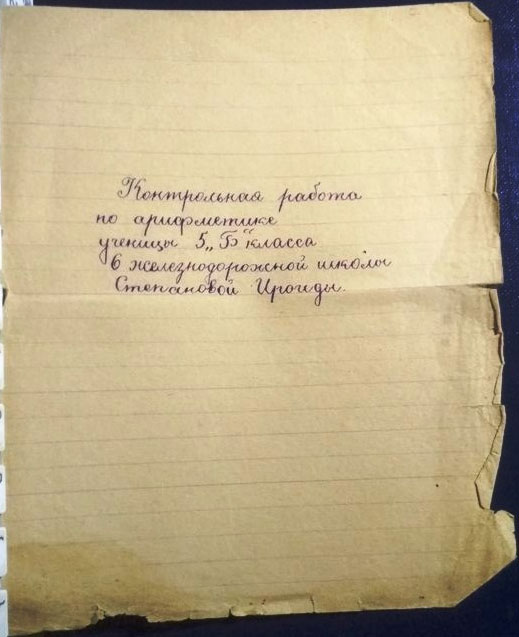 Контрольная работа
по арифметике
ученицы 5 „Б“ класса
6 железнодорожной школы
Степановой Ироиды.